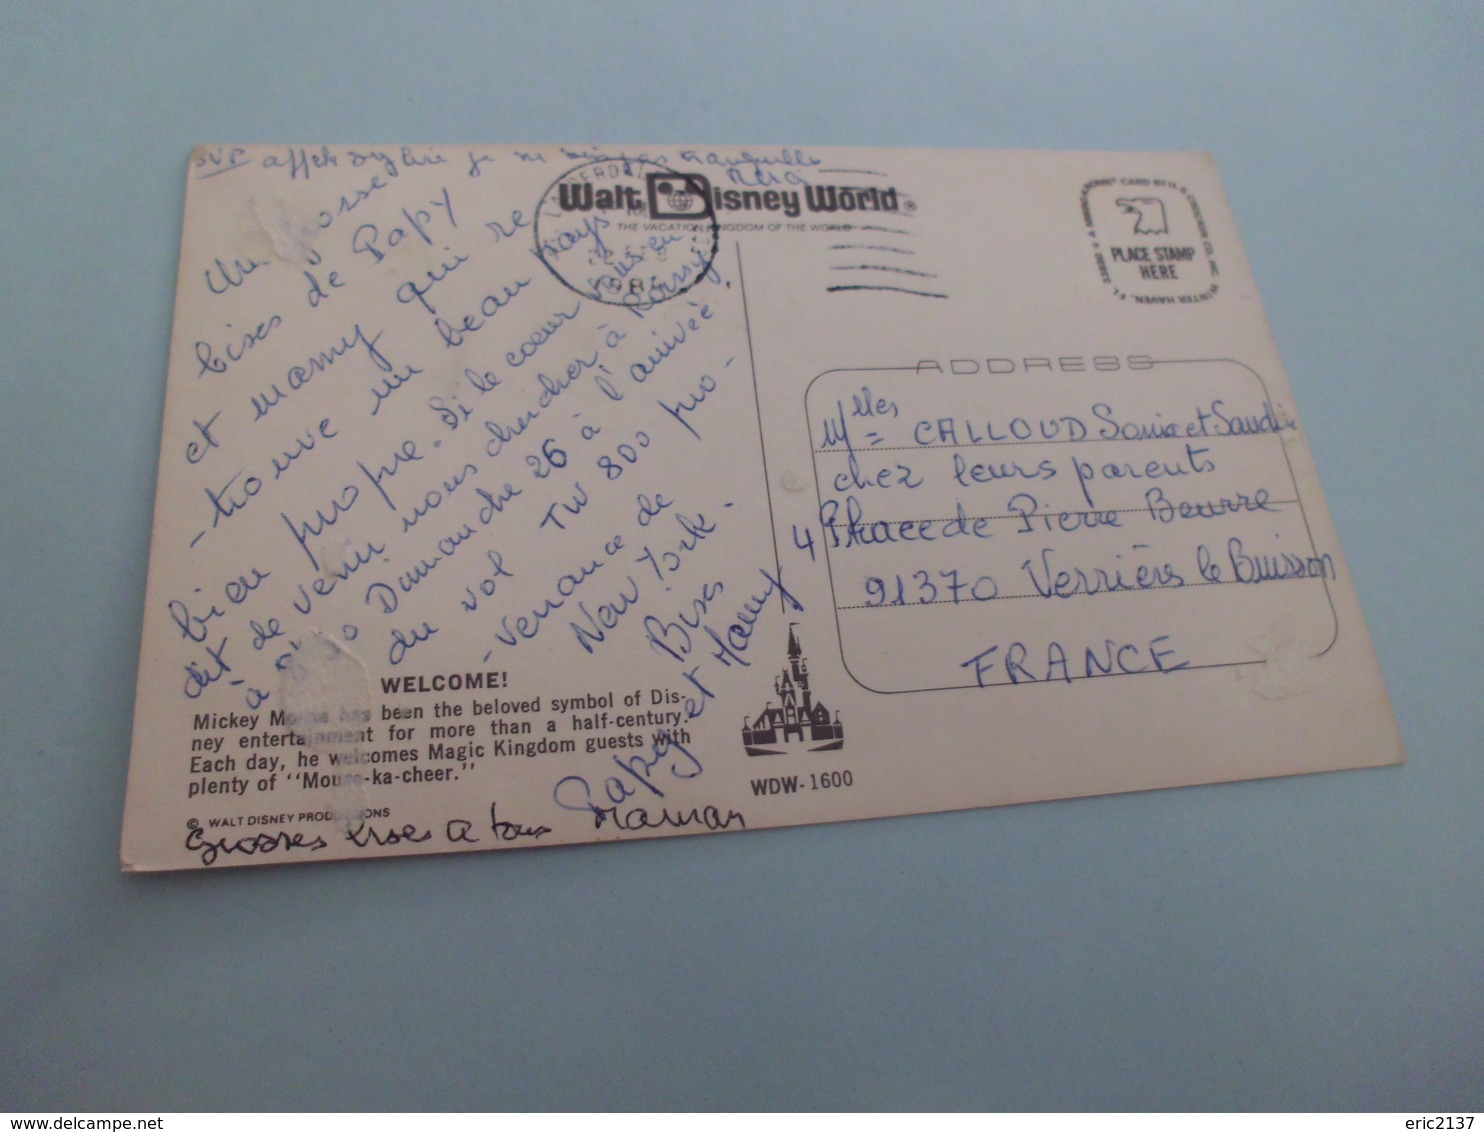 SVP
Walt Disney World
THE VACATION KINGDOM OF THE WORLD
bises de Papy
et mamy qui re
-trouve un beau pays
bien propre. Si le coeur vous en
dit de venir nous chercher à Roissy
Dimanche 26 à l'arrivée
du vol TW 800 pro-
-venance de
New York.
Bises
Papy et Mamy
WELCOME!
Mickey Mouse has been the beloved symbol of Dis-
ney entertainment for more than a half-century.
Each day, he welcomes Magic Kingdom guests with
plenty of "Mouse-ka-cheer."
© WALT DISNEY PRODUCTIONS
Grosses bises a tous Maman
WDW-1600
PLACE STAMP
HERE
ADDRESS
Mlles CALLOUD Sonia et Sandri
chez leurs parents
4 Place de Pierre Beurre
91370 Verrières le Buisson
FRANCE
eric2137